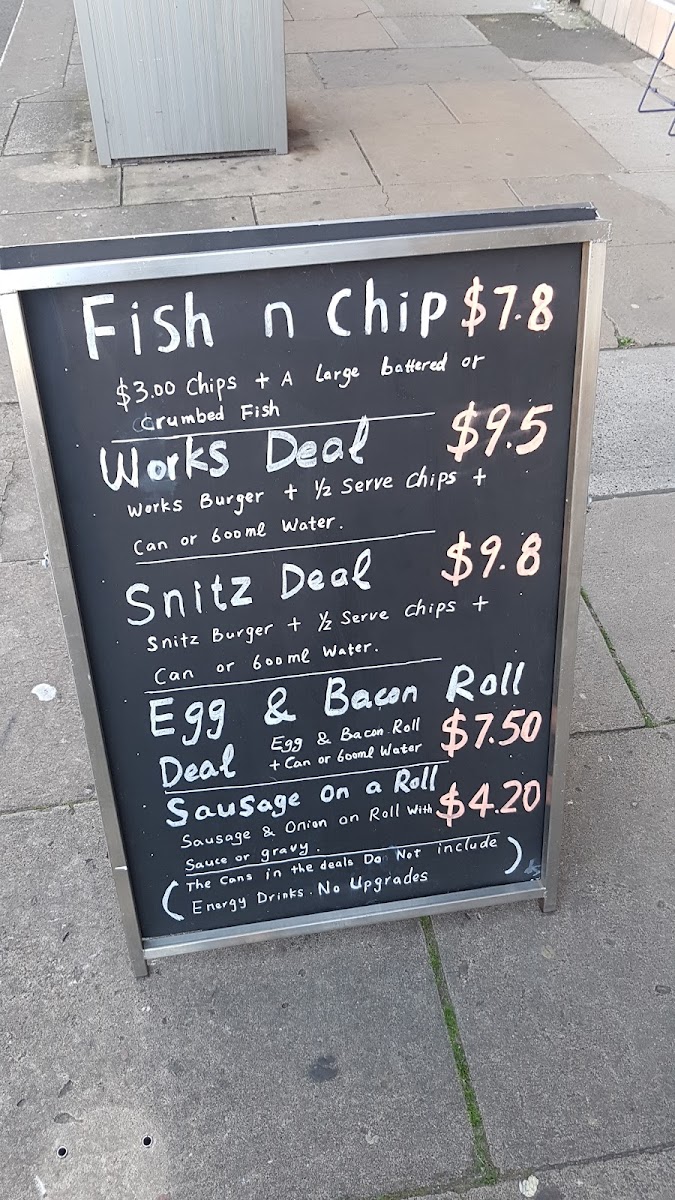 Fish n Chip $7.8
$3.00 Chips + A Large battered or
Crumbed Fish
Works Deal $9.5
Works Burger + ½ Serve Chips +
Can or 600ml Water.
Snitz Deal $9.8
Snitz Burger + ½ Serve Chips +
Can or 600ml Water.
Egg & Bacon Roll
Deal Egg & Bacon Roll $7.50
+ Can or 600ml Water
Sausage on a Roll $4.20
Sausage & Onion on Roll With
Sauce or gravy.
(The Cans in the deals Do Not include
Energy Drinks. No Upgrades)